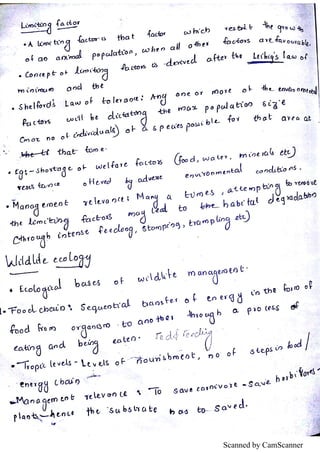 Limiting factor
• A limiting factor is that factor which restrict the growth
of an animal population, when all other factors are favourable.
• Concept of limiting factors is derived after the Leibig's law of
minimum and the
• Shelford's Law of tolerance: Any one or more of the environmental
factors will be dictating the max population size
(max no of individuals) of a species possible for that area at
that time.
• Eg:- shortage of welfare factors (food, water, minerals etc)
resistance offered by adverse environmental conditions.
• Management relevance: Many a times, attempting to remove
the limiting factors may lead to the habitat degradation
(through intense feeding, stomping, trampling etc)
Wildlife ecology
• Ecological bases of wildlife management.
1• Food chain: Sequential transfer of energy in the form of
food from organism to another through a process of
eating and being eaten. Feeding
• Tropic levels - Levels of nourishment, no of steps in food/
energy chain
- Management relevance: To save carnivore - Save herbivores -
plants - hence the substrate has to saved.
Scanned by CamScanner